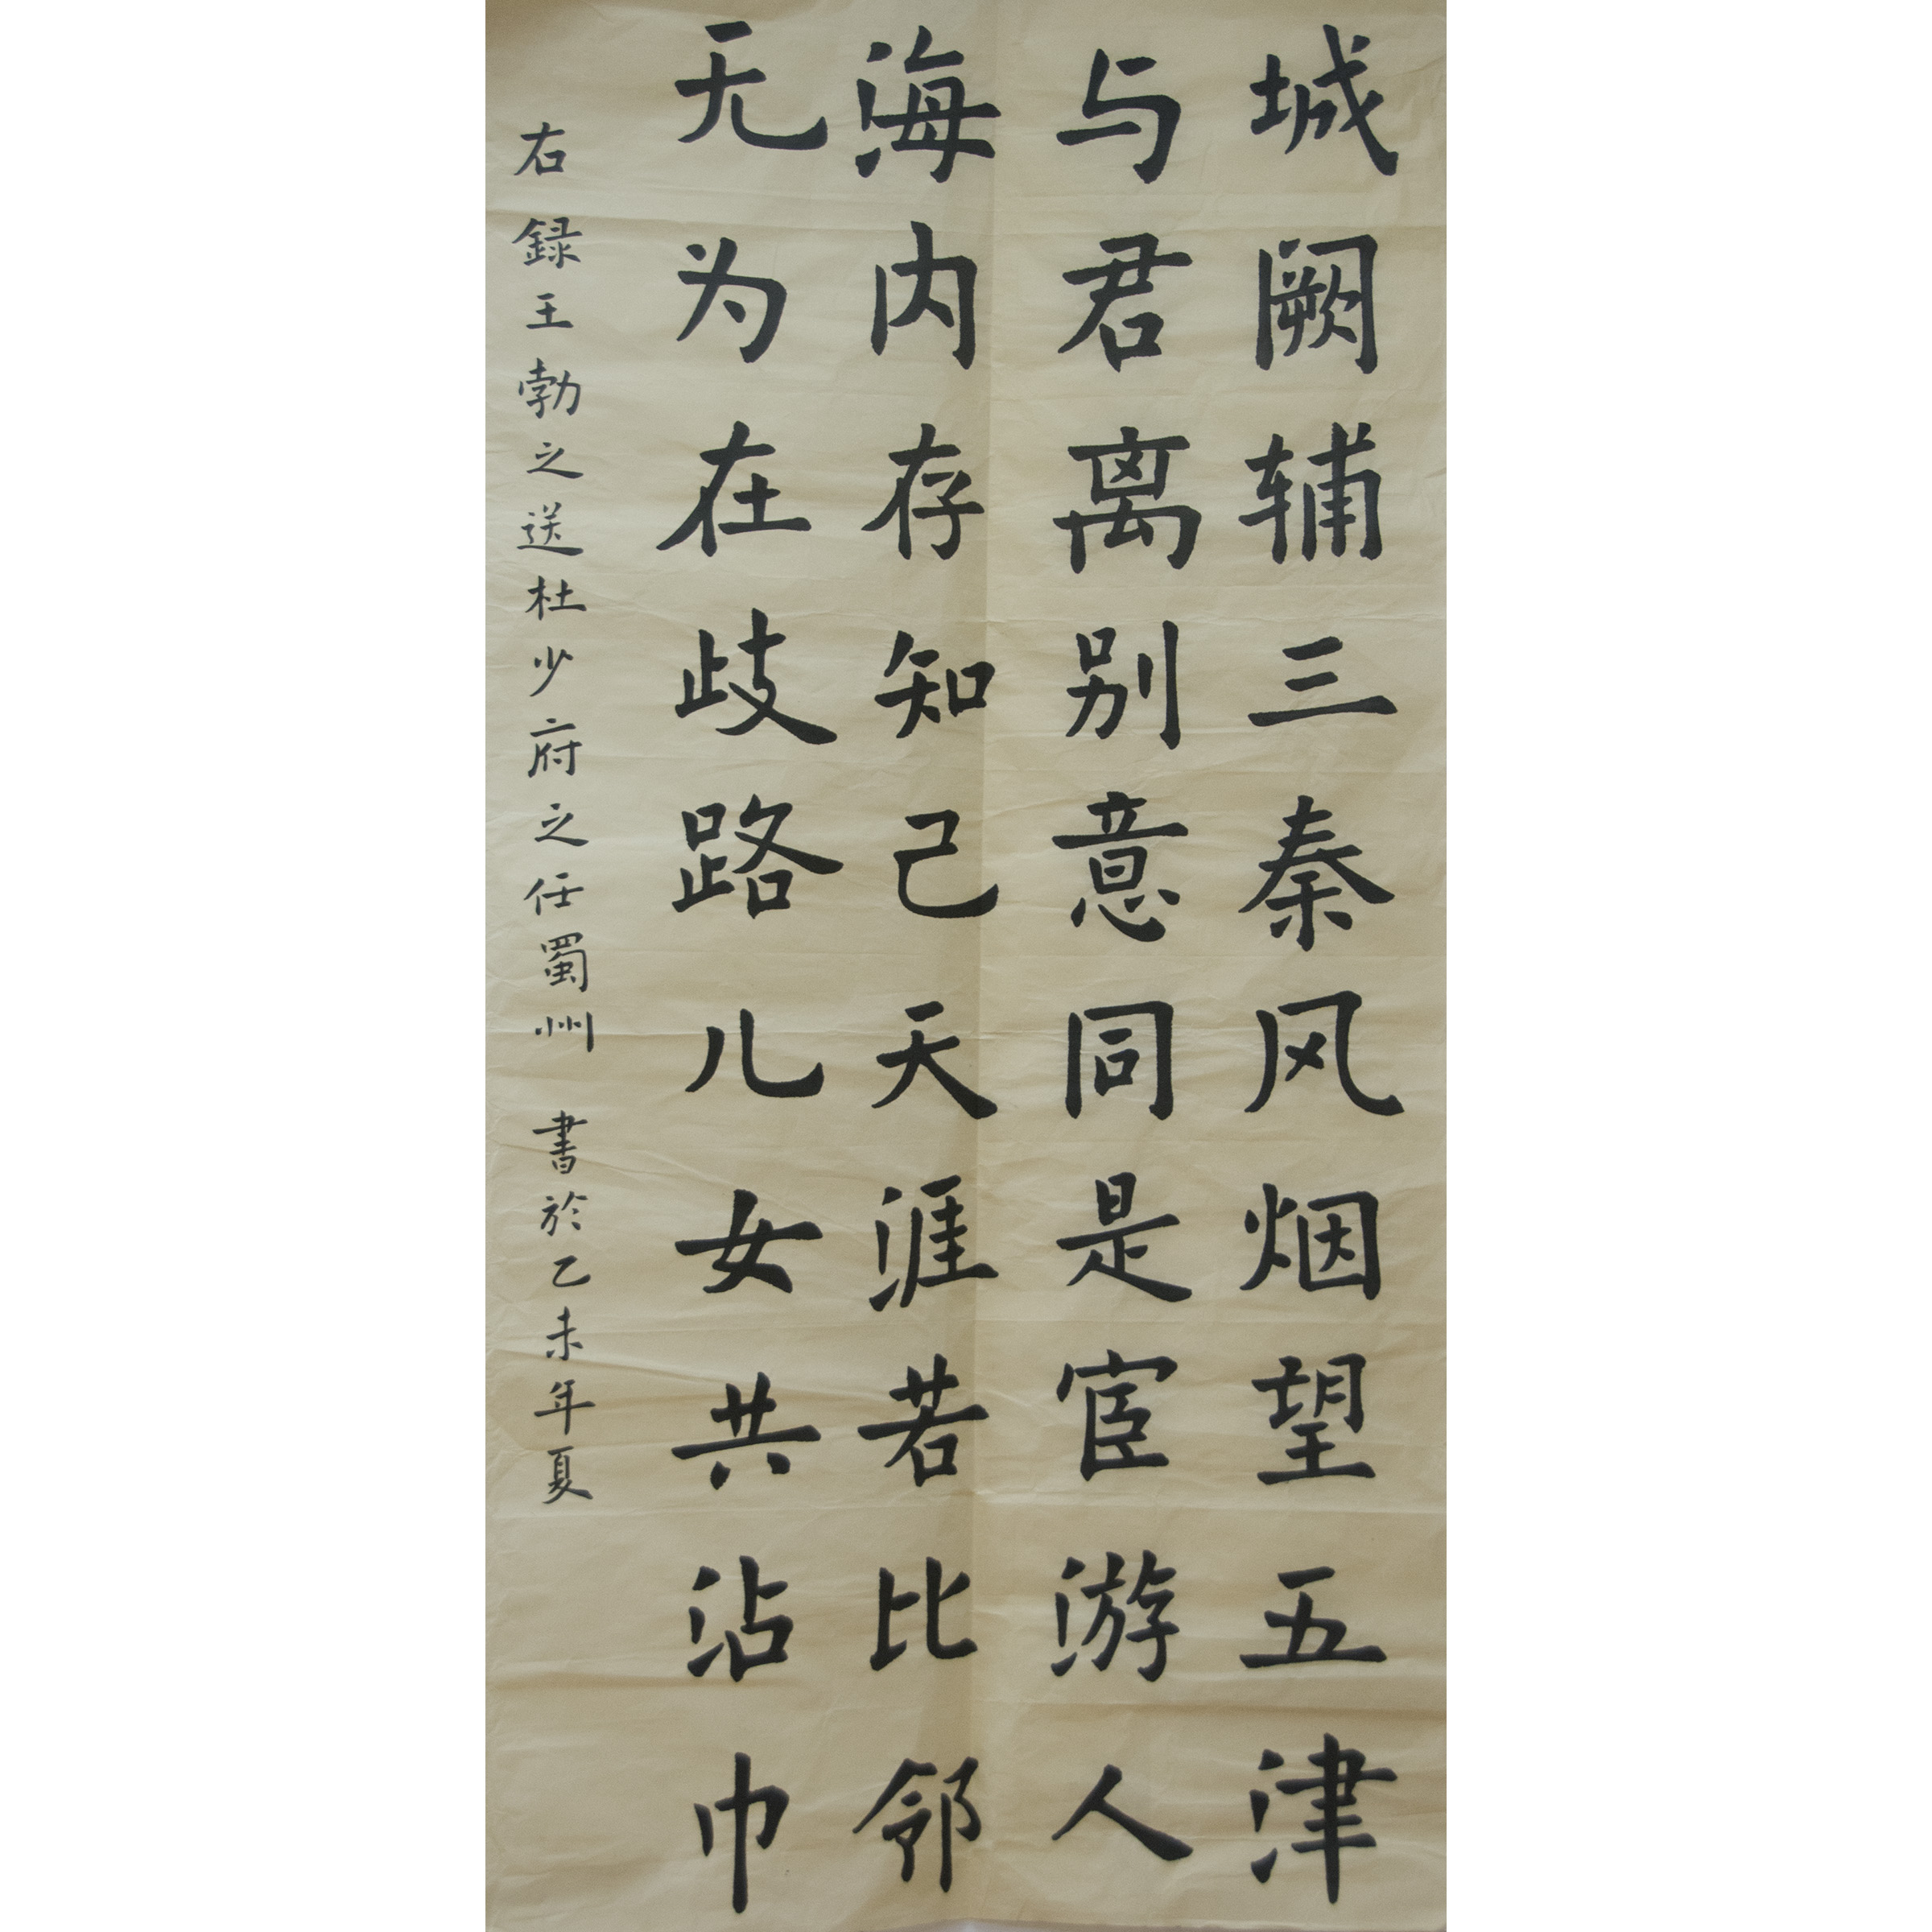 城阙辅三秦风烟望五津
与君离别意同是宦游人
海内存知己天涯若比邻
无为在歧路儿女共沾巾
右録王勃之送杜少府之任蜀州 書於乙未年夏